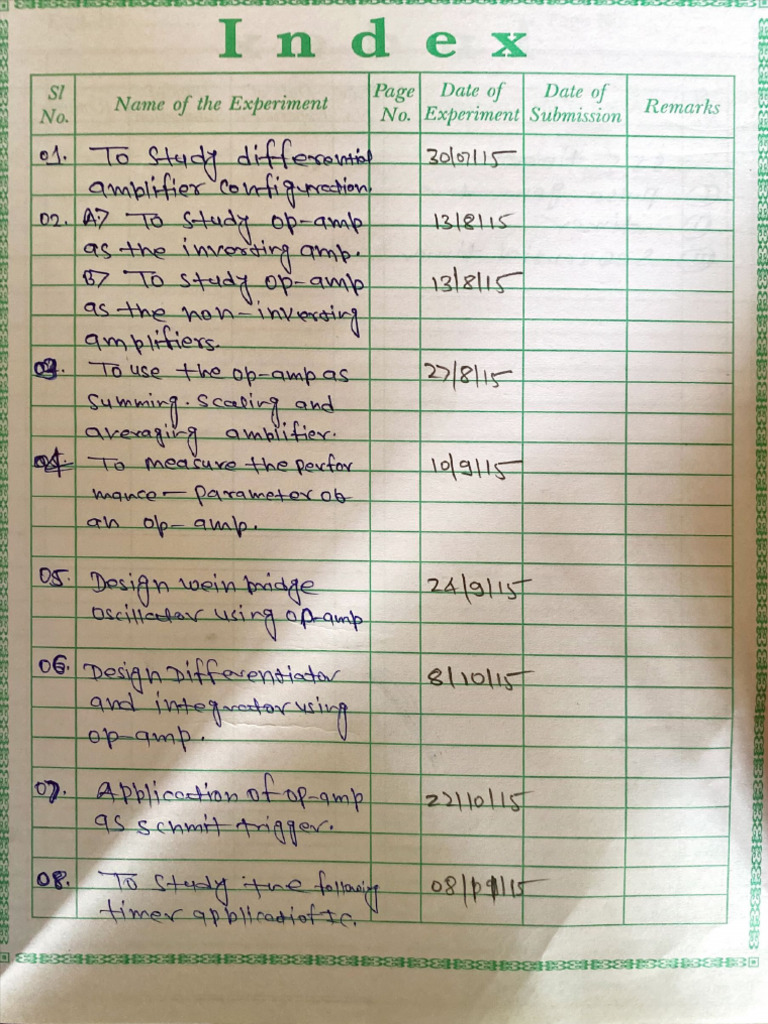 Index
Sl No. Name of the Experiment Page No. Date of Experiment Date of Submission Remarks
01. To Study differential 30/07/15
amplifier configuration.
02. A.> To study op-amp 13/8/15
as the inverting amp.
B> To study op-amp 13/8/15
as the non-inverting
amplifiers.
03. To use the op-amp as 27/8/15
Summing. Scaling and
averaging amplifier.
04. To measure the perfor 10/9/15
mance - parameter of
an op-amp.
05. Design wein bridge 24/9/15
oscillator using op-amp
06. Design Differentiator 8/10/15
and integrator using
op-amp.
07. Application of op-amp 22/10/15
as schmit trigger.
08. To study the following
timer application IC.